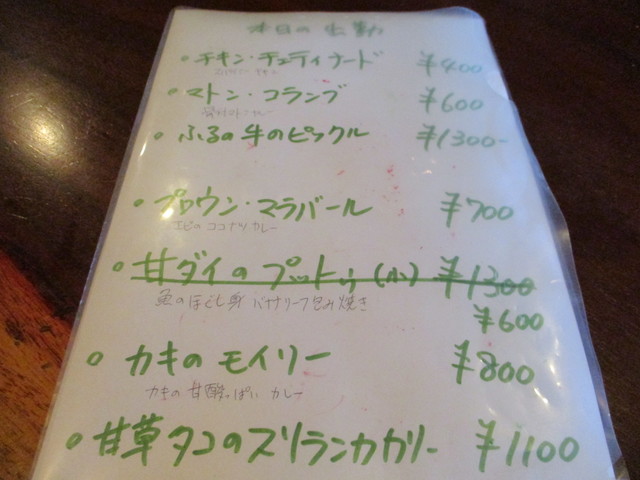 本日の
・チキン・チェティナード ¥400
チキン
・マトン・コランブ ¥600
カレー
・ふるの牛のピックル ¥1300-
・プロウン・マラバール ¥700
エビのココナツカレー
・甘ダイのプットゥ(小) ¥1300
魚のほぐし身 バナナリーフ包み焼き ¥600
・カキのモイリー ¥800
カキの甘酸っぱいカレー
・甘草タコのスリランカカリー ¥1100